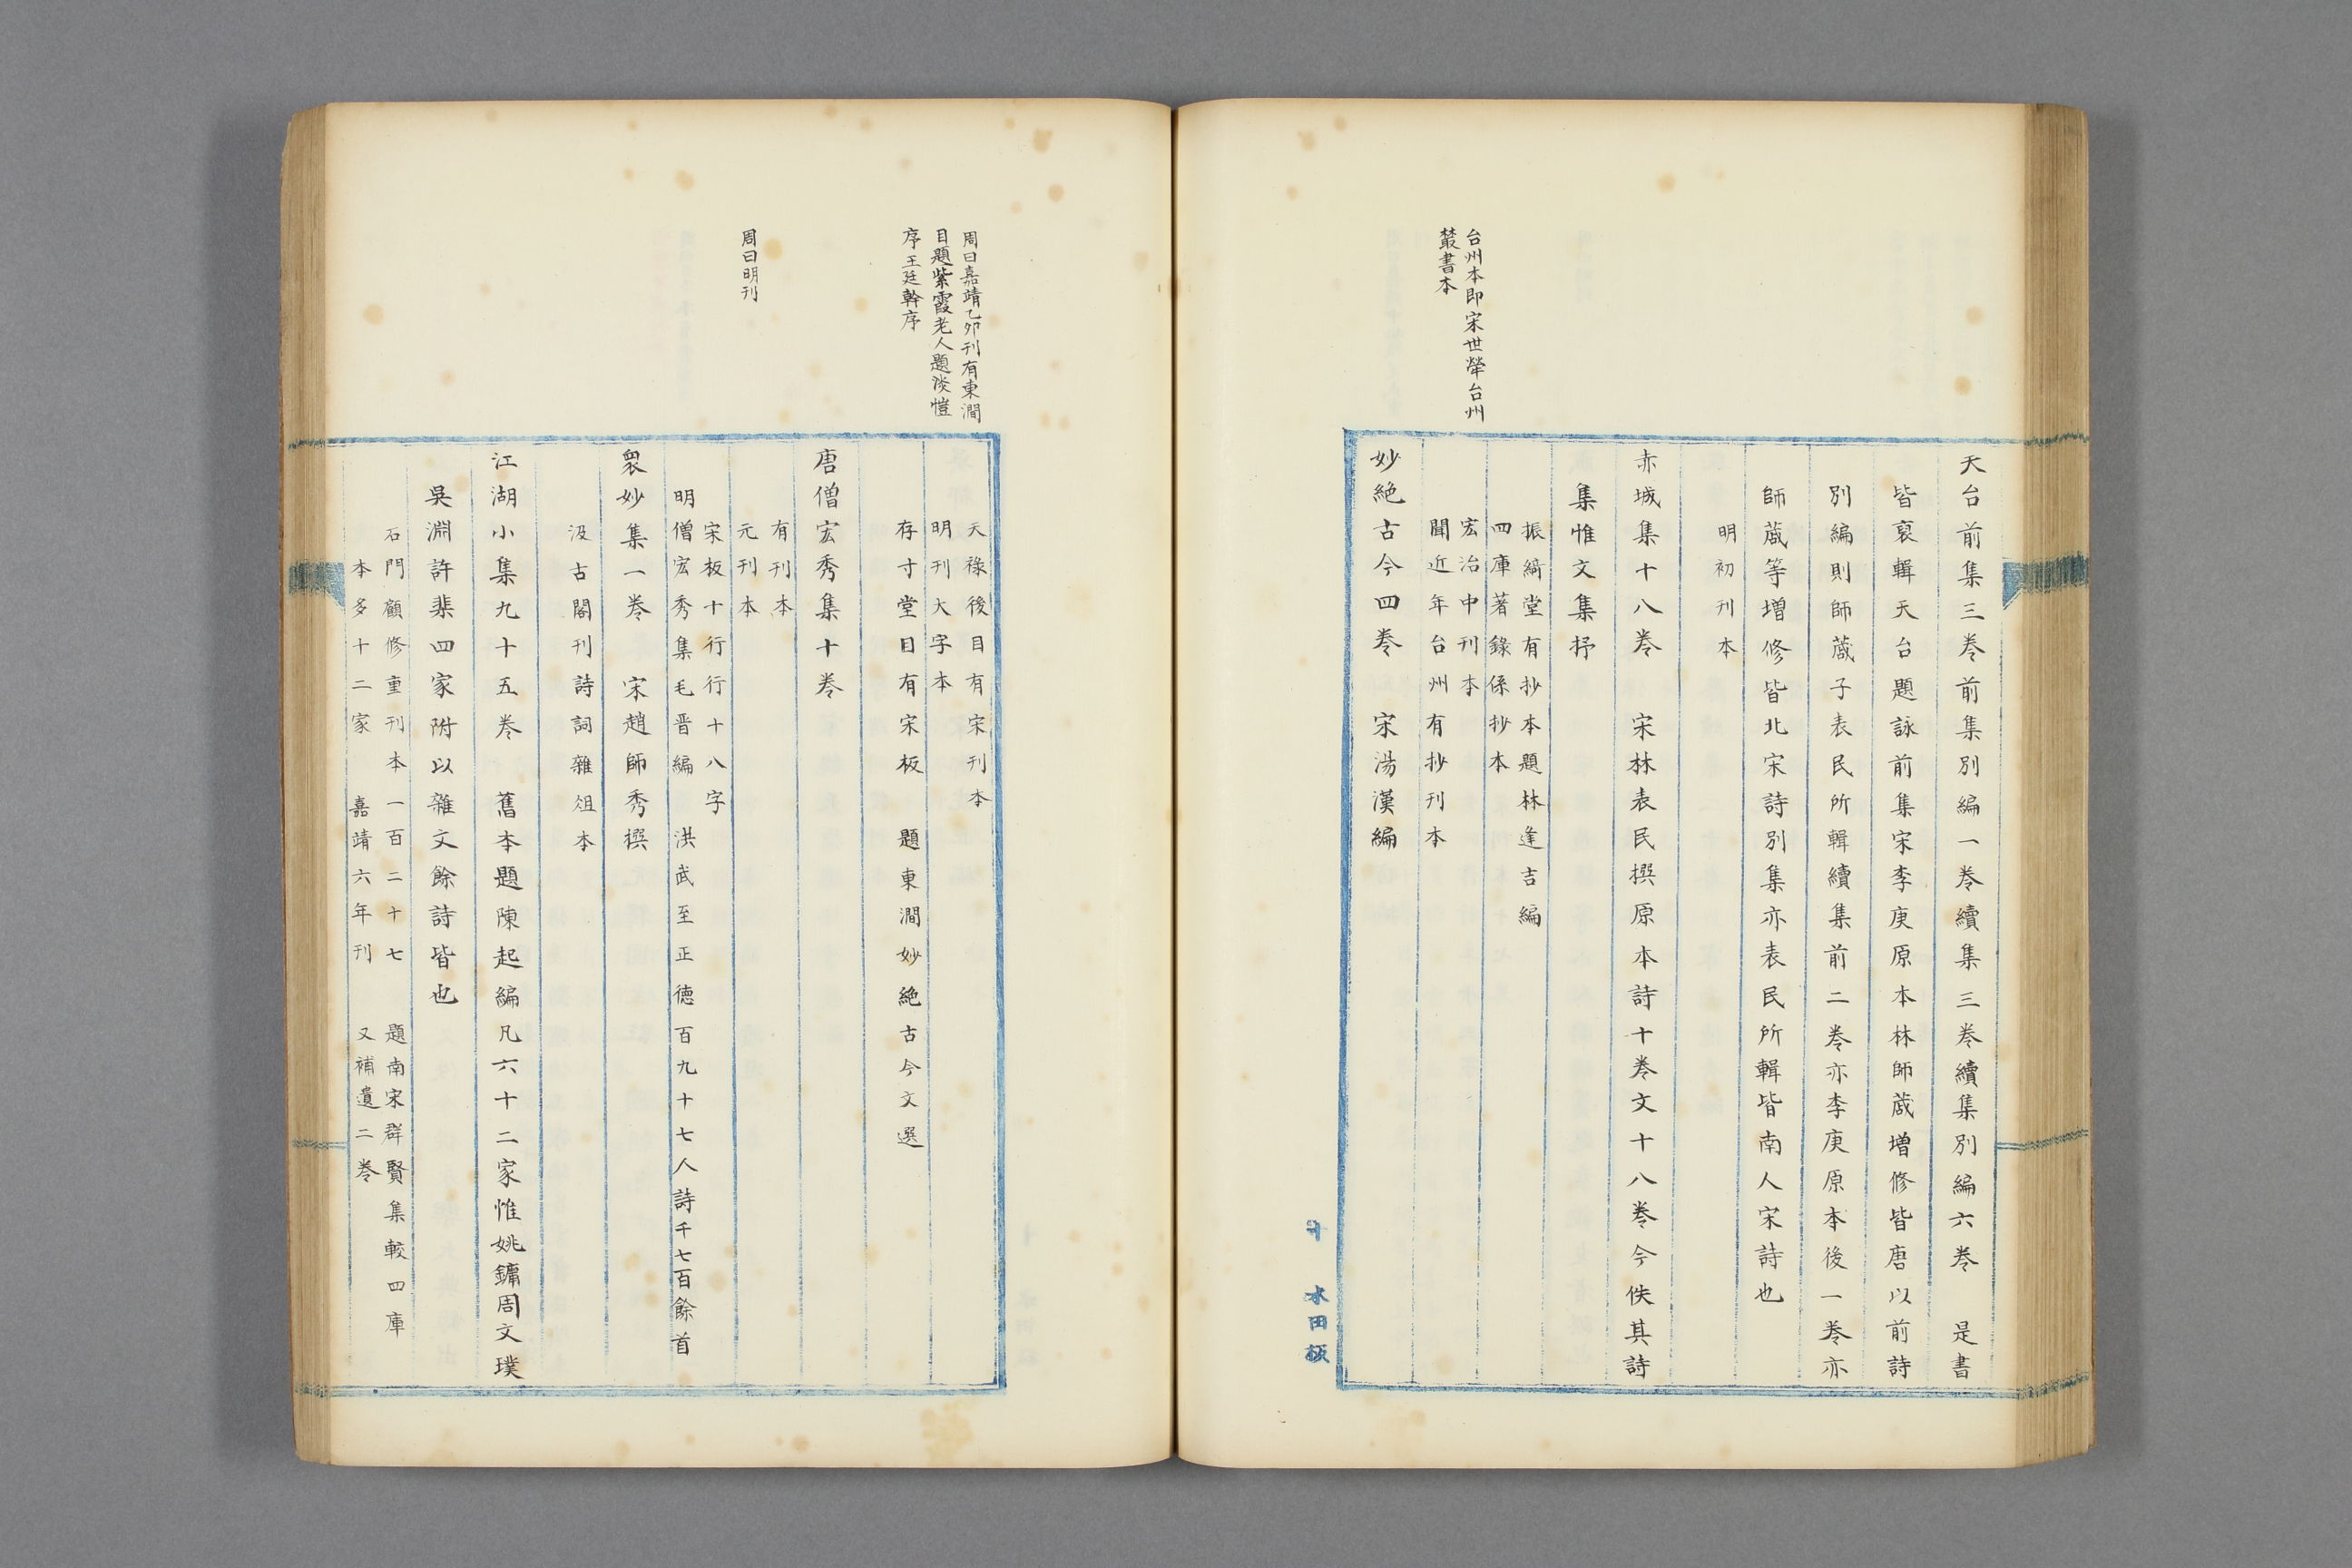 天台前集三卷前集別編一卷續集三卷續集別編六卷　是書
皆裒輯天台題詠前集宋李庚原本林師蒧增修皆唐以前詩
別編則師蒧子表民所輯續集前二卷亦李庚原本後一卷亦
師蒧等增修皆北宋詩別集亦表民所輯皆南人宋詩也
明初刊本
赤城集十八卷　宋林表民撰原本詩十卷文十八卷今佚其詩
集惟文集抒
振綺堂有抄本題林逢吉編
四庫著錄係抄本
宏治中刊本
聞近年台州有抄刊本
台州本即宋世犖台州
叢書本
妙絶古今四卷　宋湯漢編
水田板
天祿後目有宋刊本
明刊大字本
存寸堂目有宋板　題東澗妙絶古今文選
周曰嘉靖乙卯刊有東澗
目題紫霞老人題淡愷
序王廷幹序
唐僧宏秀集十卷
有刊本
元刊本
周曰明刊
宋板十行行十八字
明僧宏秀集毛晋編　洪武至正德百九十七人詩千七百餘首
衆妙集一卷　宋趙師秀撰
汲古閣刊詩詞雜俎本
江湖小集九十五卷　舊本題陳起編凡六十二家惟姚鏞周文璞
吳淵許棐四家附以雜文餘詩皆也
石門顧修重刊本一百二十七　題南宋群賢集較四庫
本多十二家　嘉靖六年刊　又補遺二卷